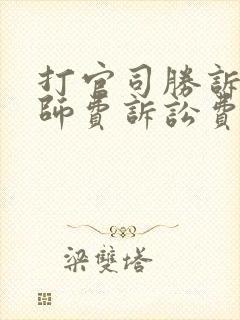 打官司勝訴
師費訴訟費
梁雙塔